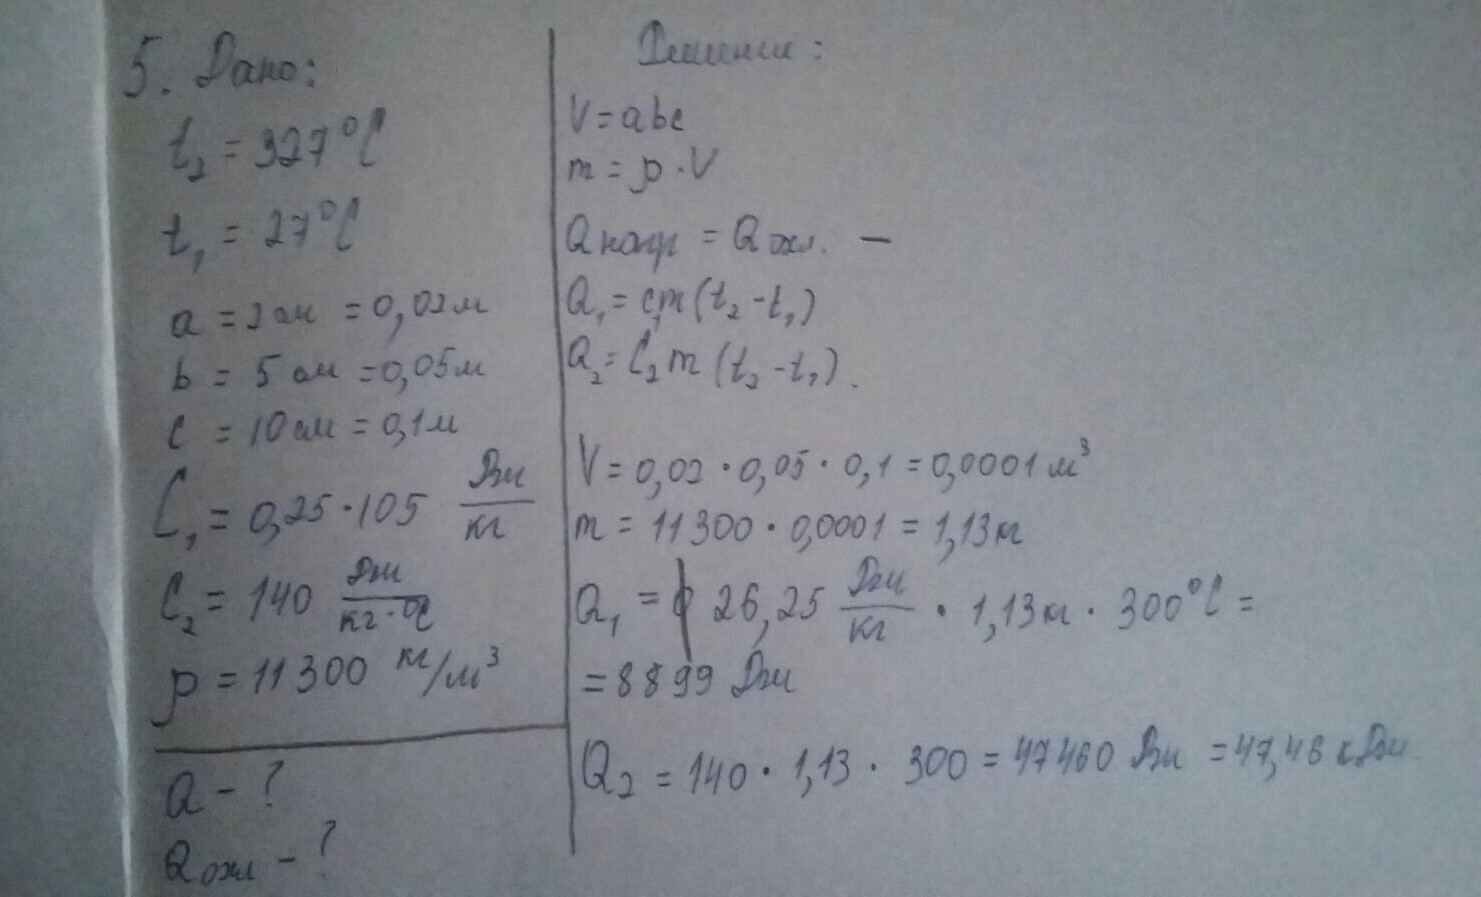 5. Дано:
t₂ = 327°C
t₁ = 27°C
a = 2 см = 0,02 м
b = 5 см = 0,05 м
c = 10 см = 0,1 м
C₁ = 0,25 · 105 Дж/кг
C₂ = 140 Дж/кг·°C
ρ = 11300 кг/м³
Q - ?
Qохл - ?
Решение:
V = abc
m = ρ · V
Qнагр = Qохл. —
Q₁ = c₁m (t₂ - t₁)
Q₂ = C₂ m (t₂ - t₁).
V = 0,02 · 0,05 · 0,1 = 0,0001 м³
m = 11300 · 0,0001 = 1,13 кг
Q₁ = 26,25 Дж/кг · 1,13 кг · 300°C =
= 8899 Дж
Q₂ = 140 · 1,13 · 300 = 47460 Дж = 47,46 кДж.